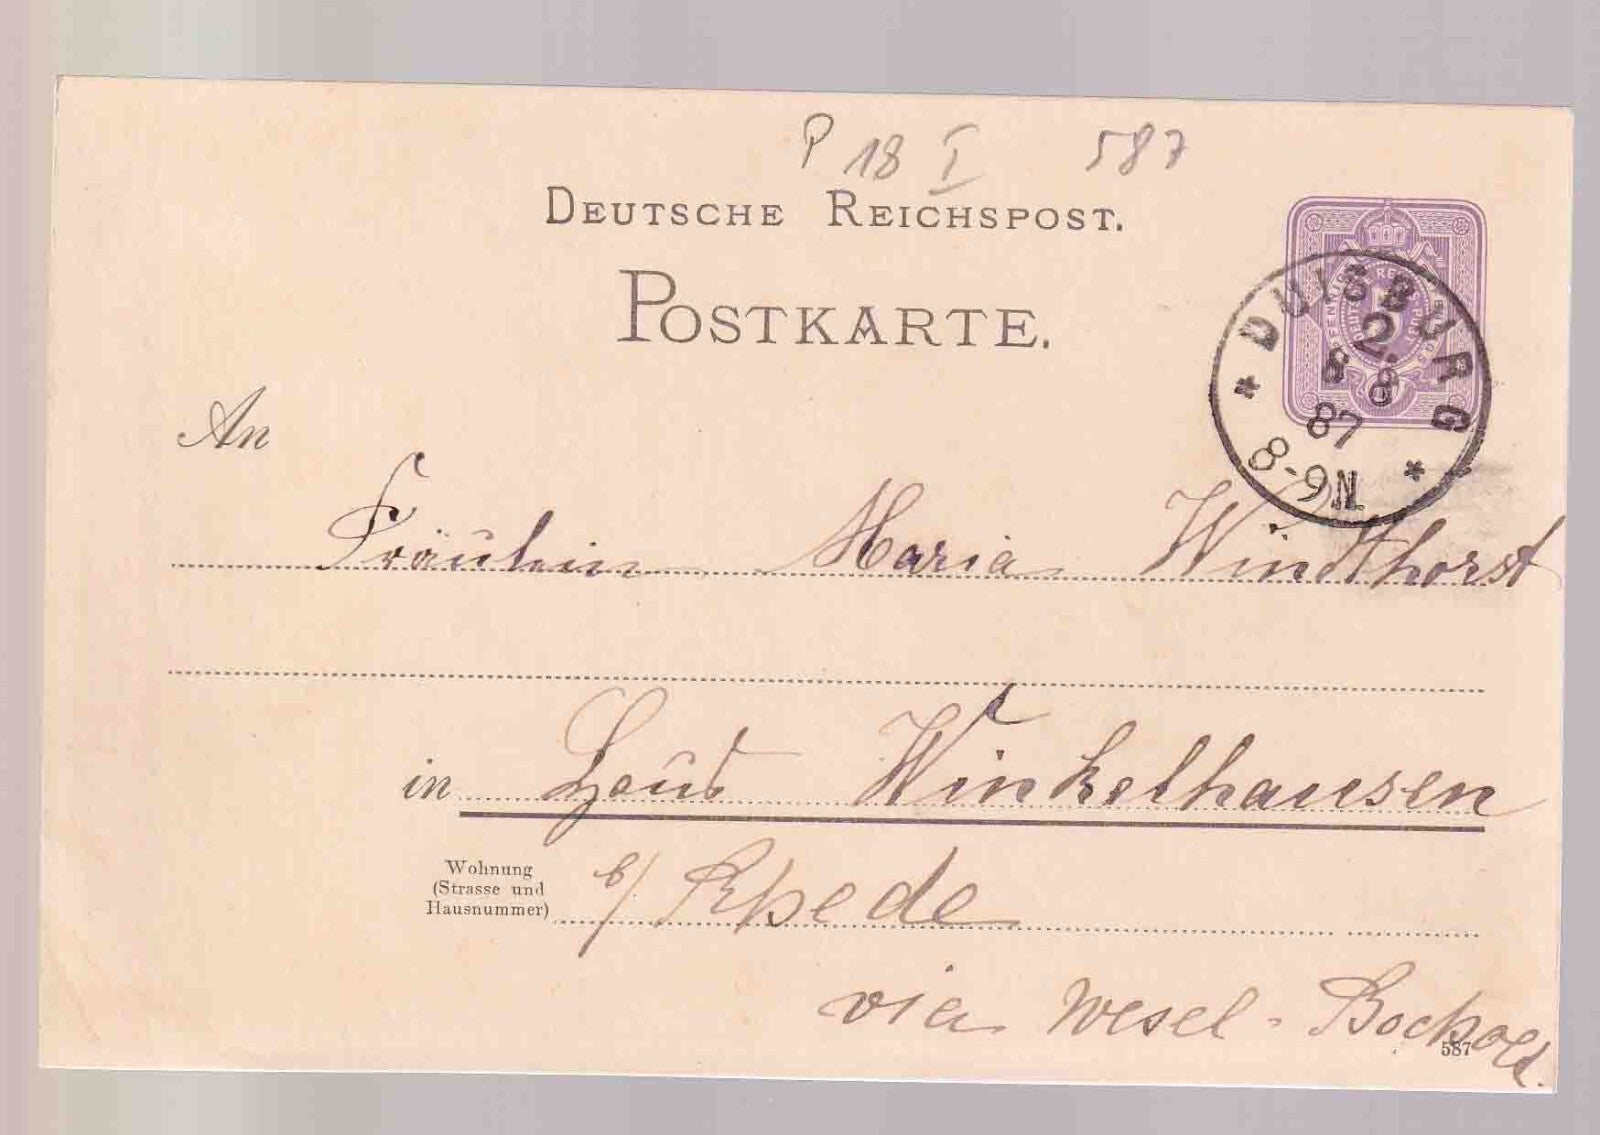 P 18 I 587
DEUTSCHE REICHSPOST.
POSTKARTE.
DUISBURG 1
2.
8 8
87
8-9N.
An
Fräulein Maria Windthorst
in Haus Winkelhausen
Wohnung
(Strasse und
Hausnummer)
b/ Rhede
via Wesel-Bocholt.
587